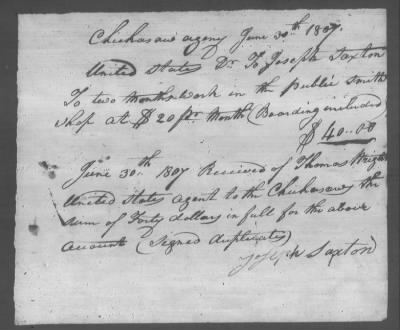 Chickasaw agency June 30th 1807.
United States Dr. To Joseph Saxton
To two months work in the public Smith
Shop at $20 pr. Month (Boarding included)
$40..00
June 30th 1807 Received of Thomas Wright
United States agent to the Chickasaws the
sum of Forty dollars in full for the above
account (Signed duplicates)
Joseph Saxton